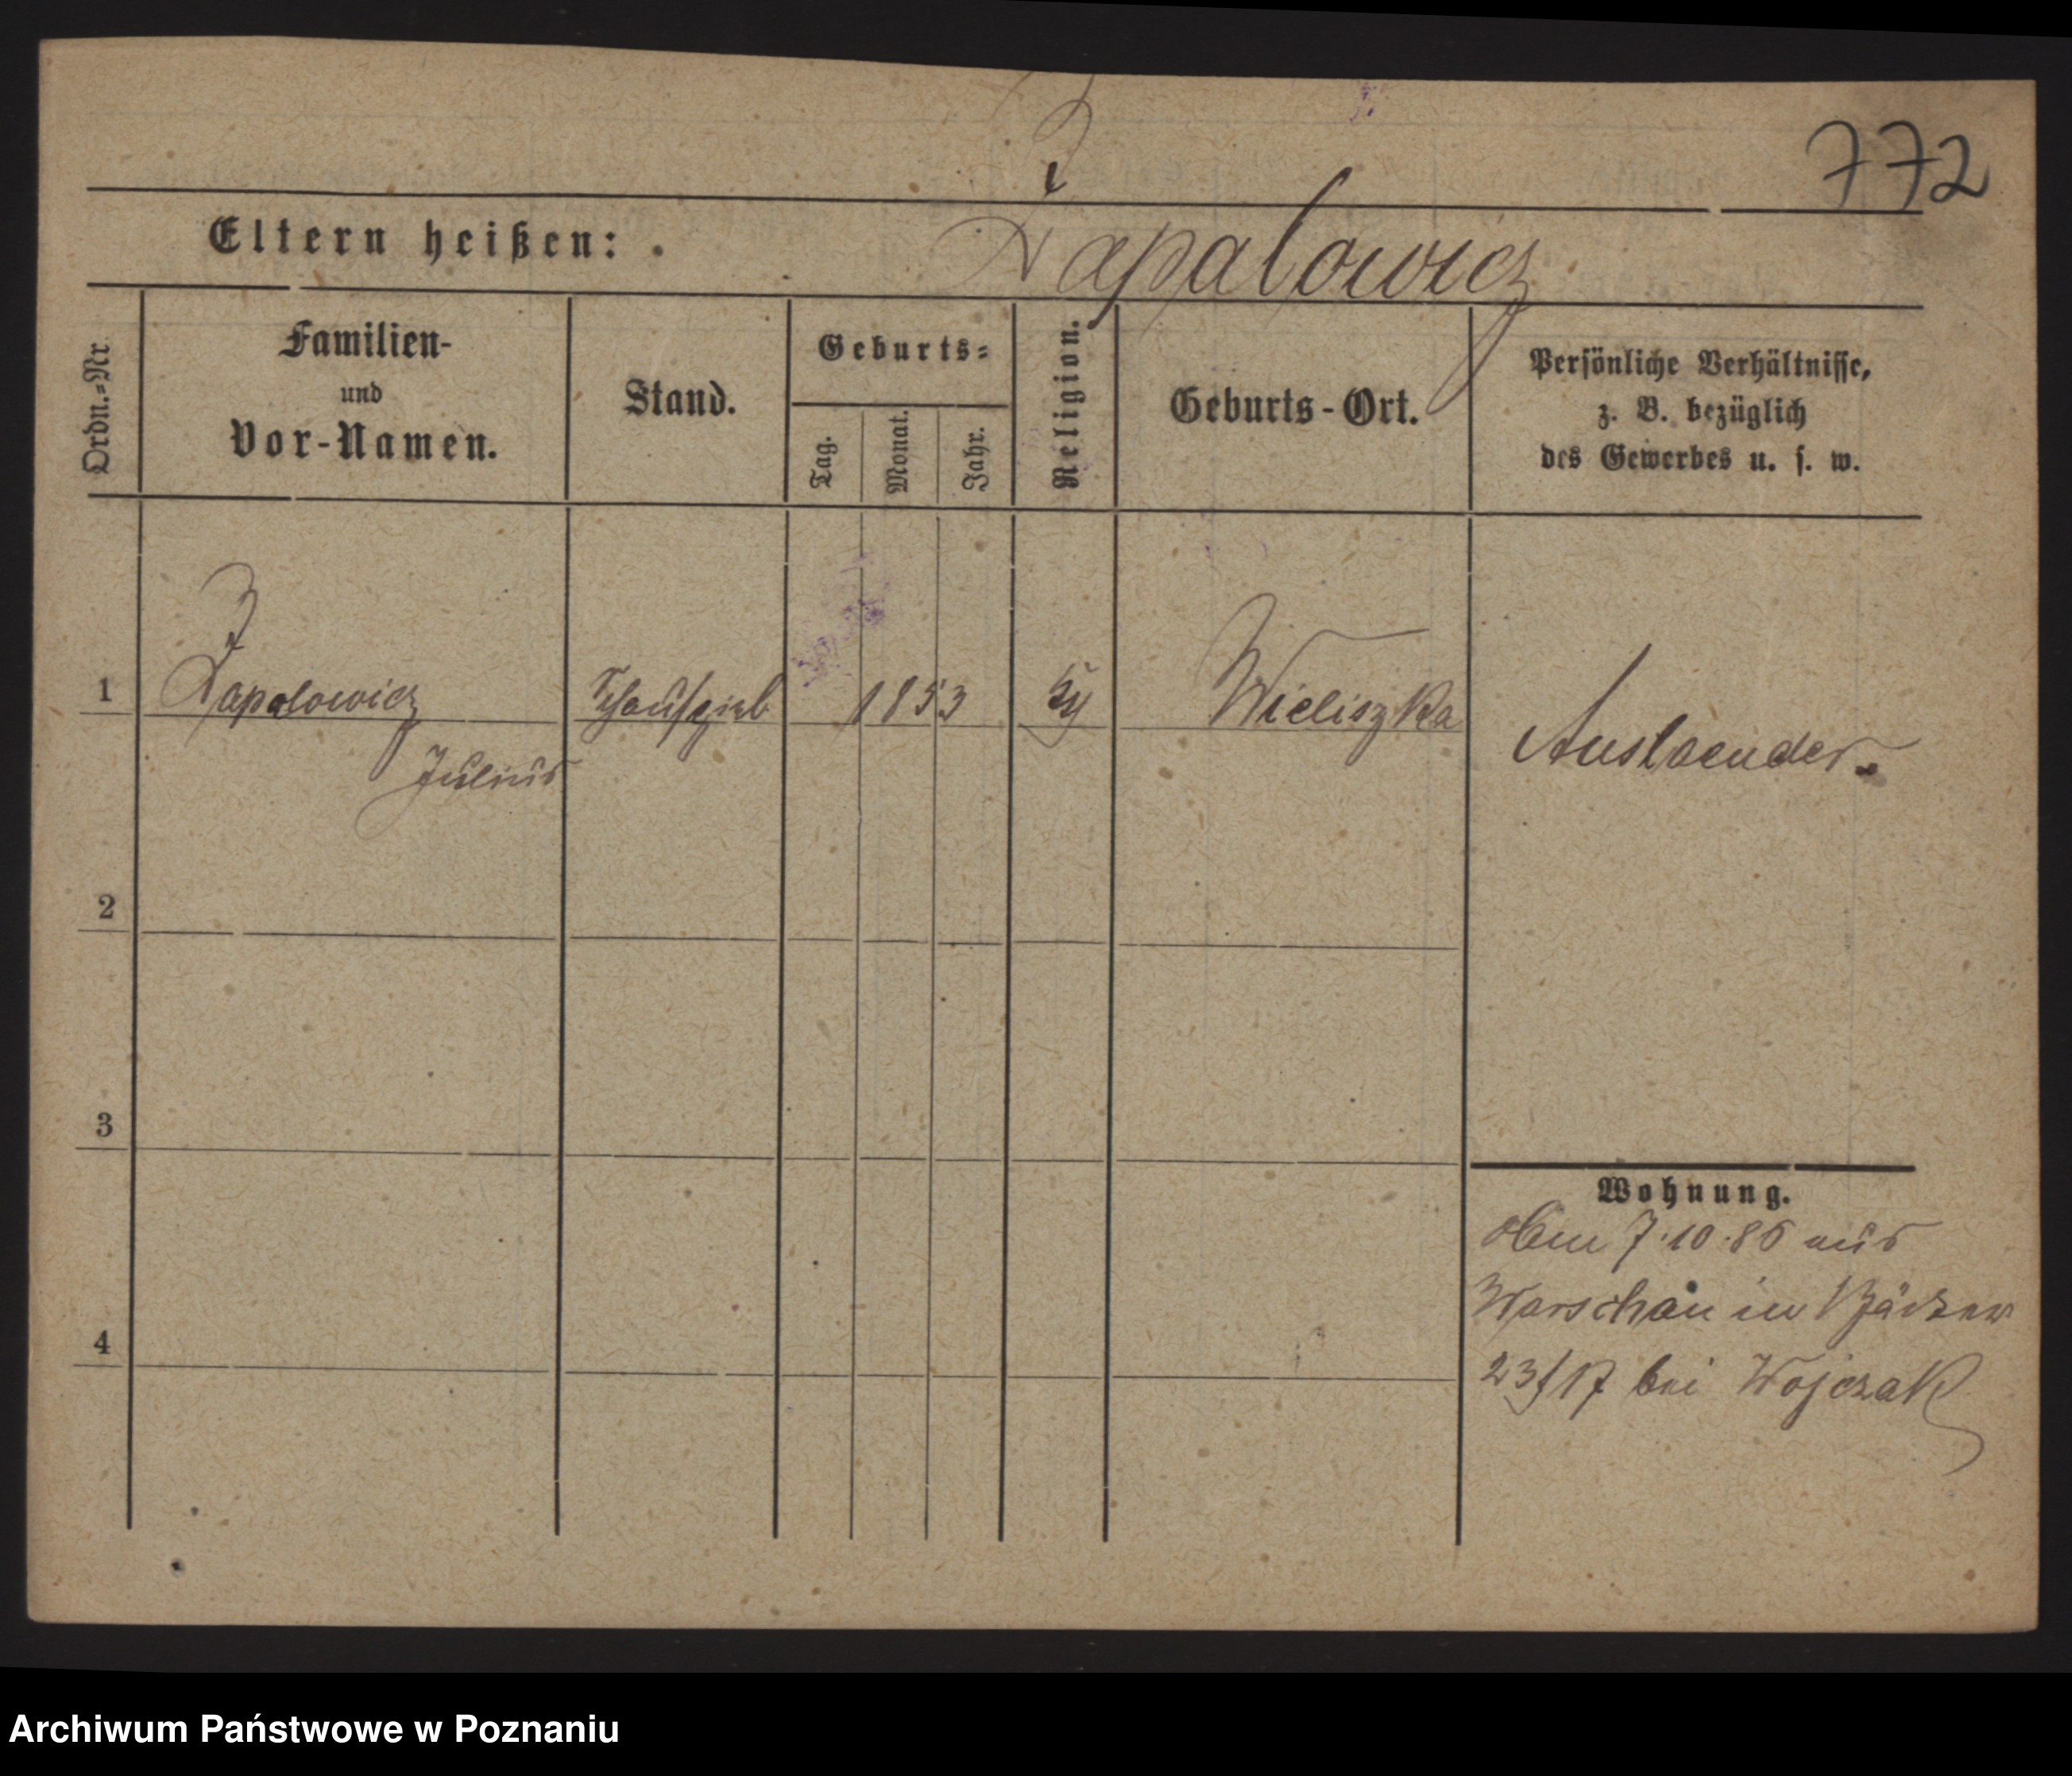 772
Eltern heißen: Zapalowicz
Ordn.-Nr.
Familien-
und
Vor-Namen.
Stand.
Geburts-
Tag.
Monat.
Jahr.
Religion.
Geburts-Ort.
Persönliche Verhältnisse,
z. B. bezüglich
des Gewerbes u. s. w.
1
Zapalowicz
Julius
1853
Wieliszka
Auslaender.
2
3
4
Wohnung.
7.10.86 aus
Warschau in
23/17 bei Wojczak
Archiwum Państwowe w Poznaniu